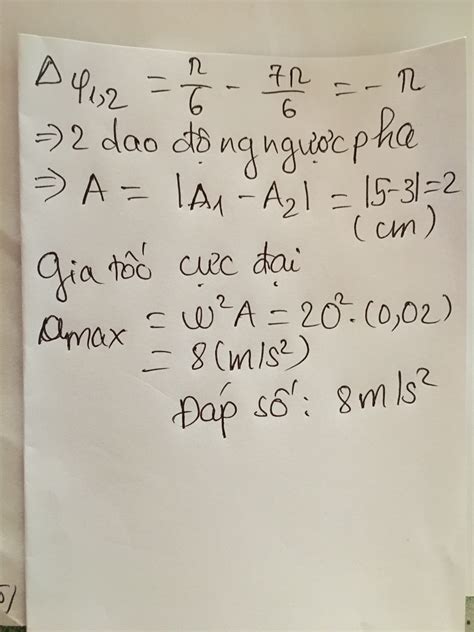 Δφ1,2 = π/6 - 7π/6 = - π
⇒ 2 dao động ngược pha
⇒ A = |A1 - A2| = |5-3| = 2
(cm)
Gia tốc cực đại
amax = ω²A = 20². (0,02)
= 8 (m/s²)
Đáp số: 8m/s²
5/